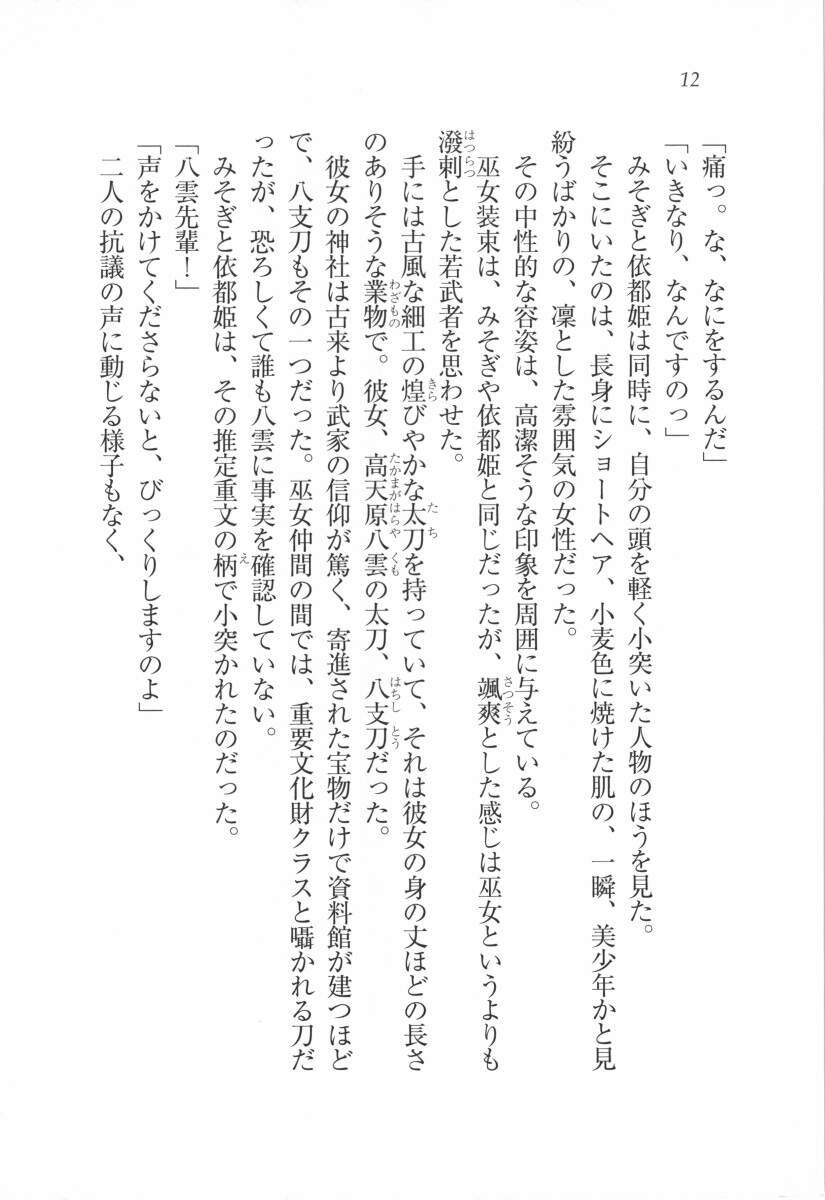 12
「痛っ。な、なにをするんだ」
「いきなり、なんですのっ」
みそぎと依都姫は同時に、自分の頭を軽く小突いた人物のほうを見た。
そこにいたのは、長身にショートヘア、小麦色に焼けた肌の、一瞬、美少年かと見
紛うばかりの、凛とした雰囲気の女性だった。
その中性的な容姿は、高潔そうな印象を周囲に与えている。
巫女装束は、みそぎや依都姫と同じだったが、颯爽とした感じは巫女というよりも
さっそう
潑剌とした若武者を思わせた。
はつらつ
手には古風な細工の煌びやかな太刀を持っていて、それは彼女の身の丈ほどの長さ
きら
たち
のありそうな業物で。彼女、高天原八雲の太刀、八支刀だった。
わざもの
たかまがはらやくも
はちしとう
彼女の神社は古来より武家の信仰が篤く、寄進された宝物だけで資料館が建つほど
で、八支刀もその一つだった。巫女仲間の間では、重要文化財クラスと囁かれる刀だ
ったが、恐ろしくて誰も八雲に事実を確認していない。
みそぎと依都姫は、その推定重文の柄で小突かれたのだった。
え
「八雲先輩！」
「声をかけてくださらないと、びっくりしますのよ」
二人の抗議の声に動じる様子もなく、